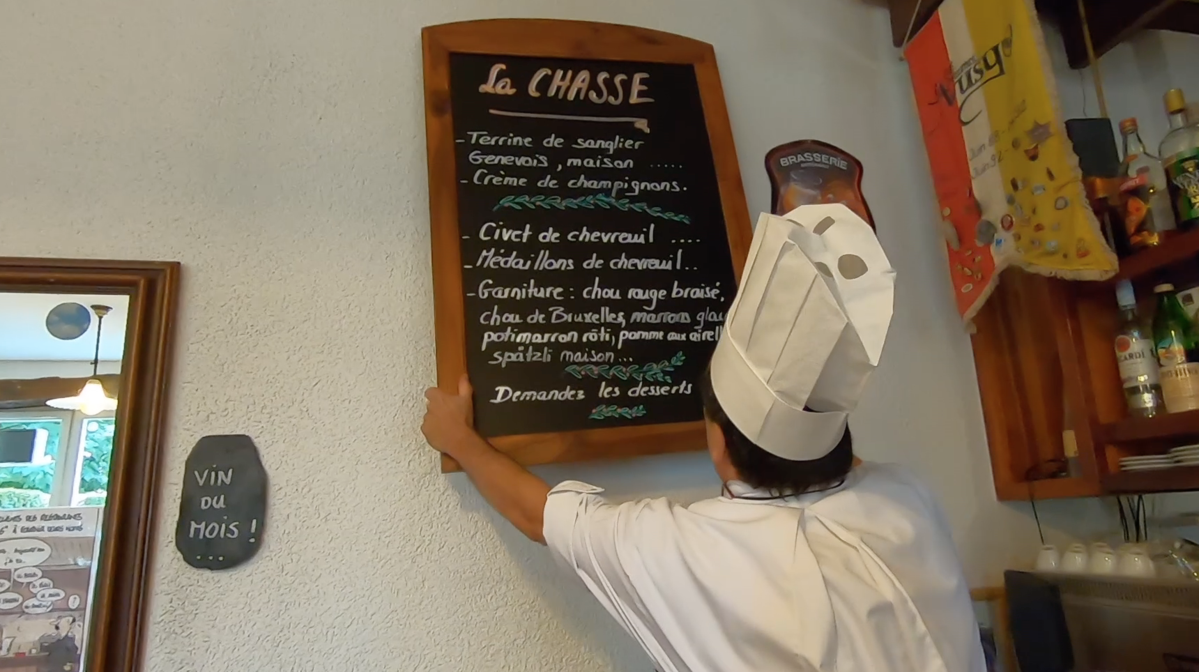 La CHASSE
- Terrine de sanglier
Genevois, maison .....
- Crème de champignons.
- Civet de chevreuil ....
- Médaillons de chevreuil..
- Garniture : chou rouge braisé,
chou de Bruxelles, marrons
potimarron rôti, pomme aux
spätzli maison...
Demandez les desserts
BRASSERIE
VIN
DU
MOIS !
...